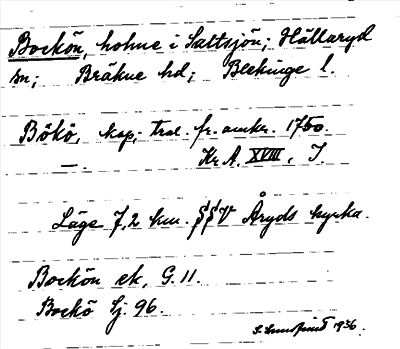 Bockön, holme i Saltsjön; Hällaryd
sn; Bräkne hd; Blekinge l.
Bökö, kop. trol. fr. omkr. 1750.
—. Kr. A. XVIII, I.
Läge 7,2 km. SSV Åryds kyrka.
Bockön ek, G. 11.
Bockö Sj. 96.
1936.